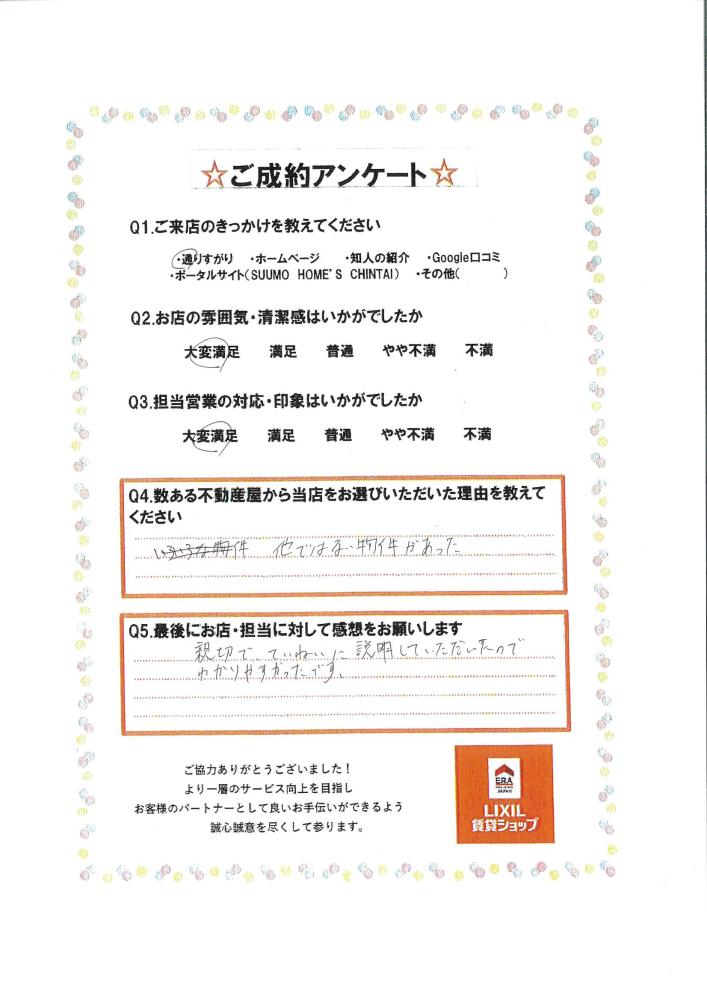 ☆ご成約アンケート☆
Q1.ご来店のきっかけを教えてください
・通りすがり ・ホームページ ・知人の紹介 ・Google口コミ
・ポータルサイト(SUUMO HOME'S CHINTAI) ・その他( )
Q2.お店の雰囲気・清潔感はいかがでしたか
大変満足 満足 普通 やや不満 不満
Q3.担当営業の対応・印象はいかがでしたか
大変満足 満足 普通 やや不満 不満
Q4.数ある不動産屋から当店をお選びいただいた理由を教えて
ください
いろいろな物件 他ではない物件があった
Q5.最後にお店・担当に対して感想をお願いします
親切で、ていねいに説明していただいたので
わかりやすかったです。
ご協力ありがとうございました!
より一層のサービス向上を目指し
お客様のパートナーとして良いお手伝いができるよう
誠心誠意を尽くして参ります。
ERA
JAPAN
LIXIL
賃貸ショップ